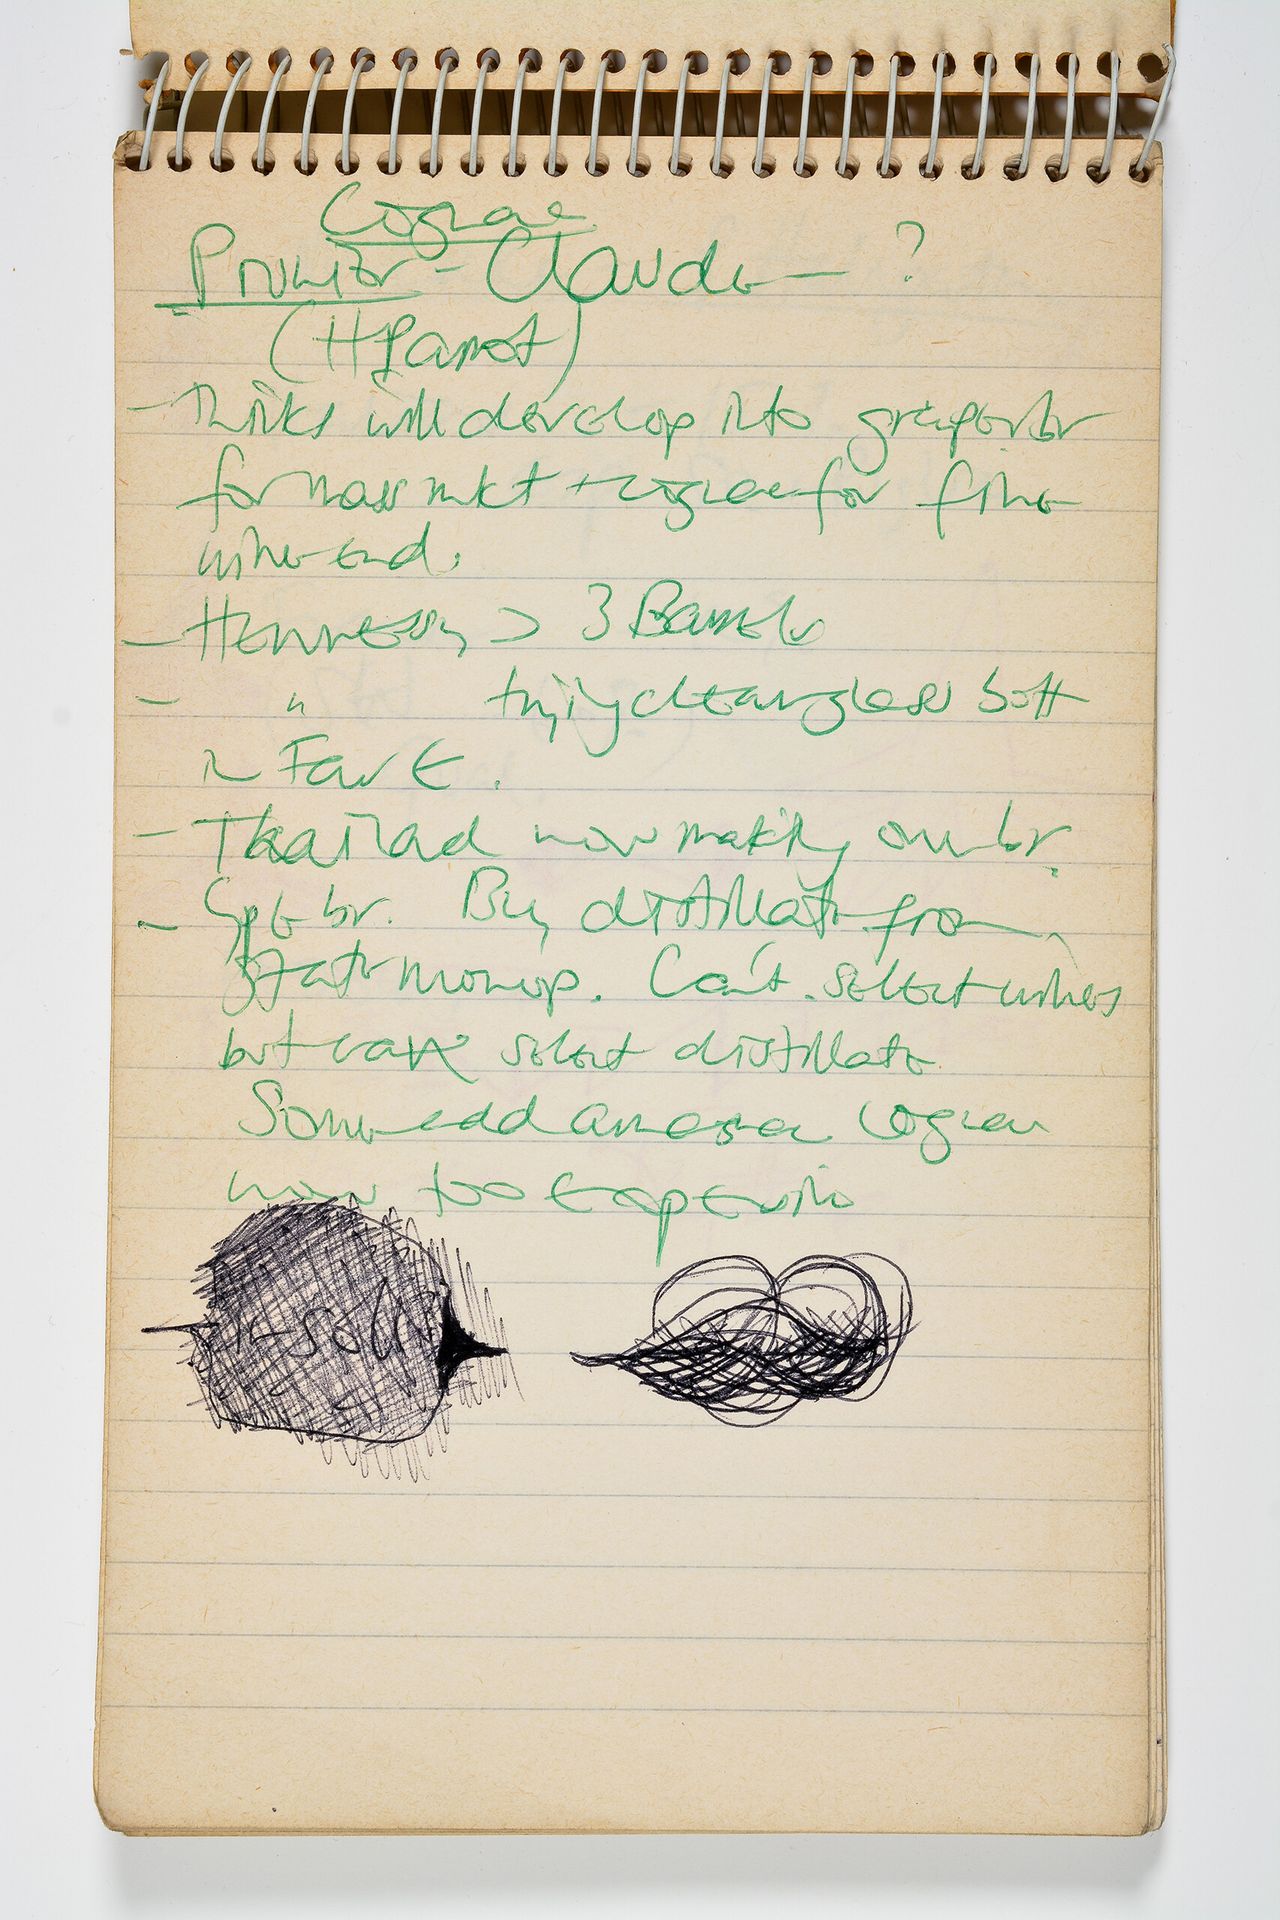 Cognac
Prunier - Claude — ?
(H Parrot)
- Thinks will develop into grape br
for mass mkt + cognac for fine
wine end.
- Hennessy > 3 Barrels
- " trying clear glass bott
in Far E.
- Thailand now making own br.
- Gpe br. Buy distillate from
State monop. Can't select wines
but can select distillate
Some add armagnac cognac
now too expensive